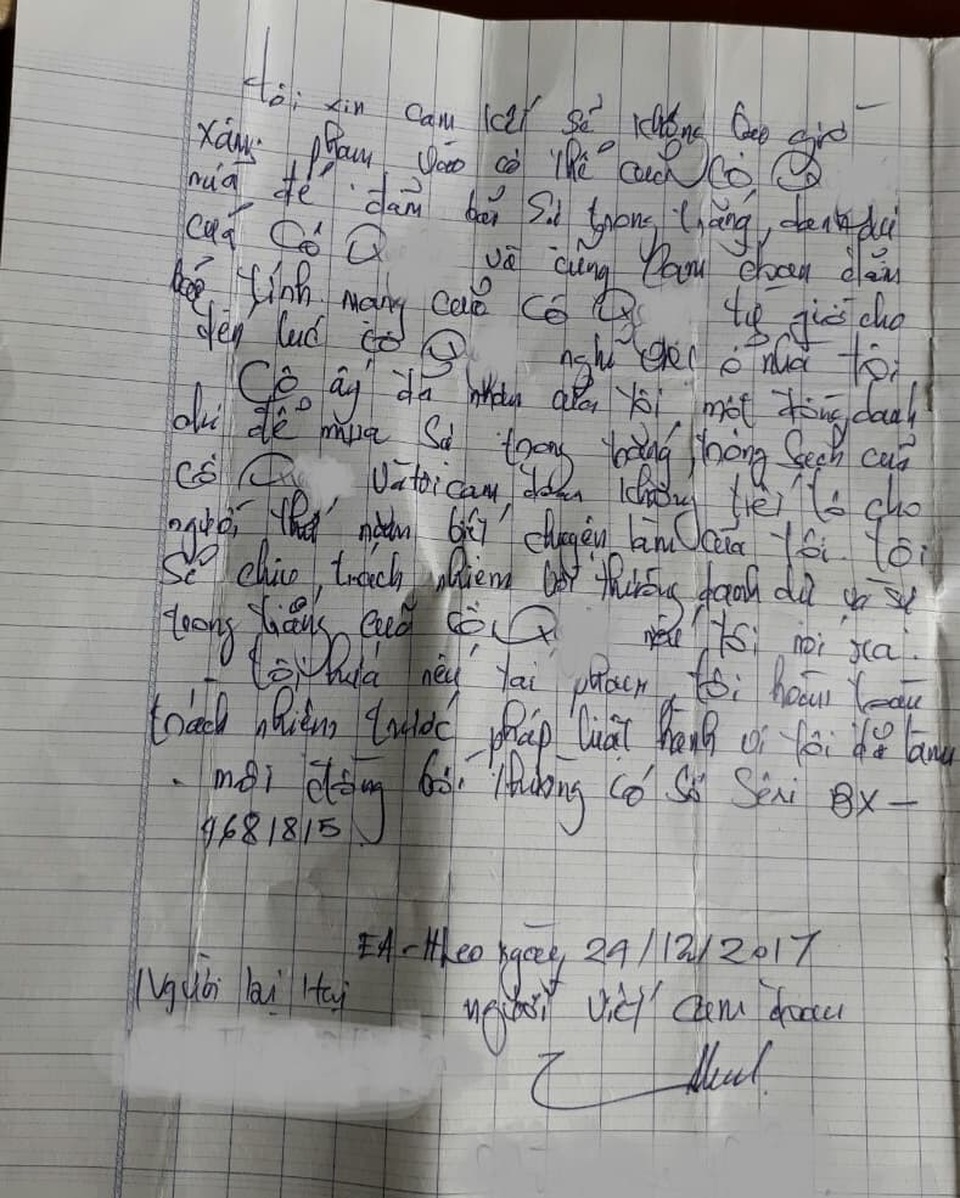 Tôi xin cam kết sẽ không bao giờ
xâm phạm vào cơ thể của Cô Q
nữa để đảm bảo sự trong trắng, danh dự
của Cô Q và cũng cam đoan đảm
bảo tính mạng của cô Q từ giờ cho
đến lúc cô Q nghỉ ở nhà tôi
Cô ấy đã nhận của tôi một đồng danh
dự để mua sự trong trắng trong sạch của
Cô Q Và tôi cam đoan không tiết lộ cho
người thứ năm biết chuyện làm của tôi. Tôi
Sẽ chịu trách nhiệm bồi thường danh dự và sự
trong trắng của cô Q nếu tôi nói ra.
- Tôi hứa nếu tái phạm tôi hoàn toàn
trách nhiệm trước pháp luật hành vi tôi đã làm
- một đồng bồi thường có số Sêri BX-
9681815
EA-Hleo ngày 24/12/2017
Người bị Hại người viết cam đoan